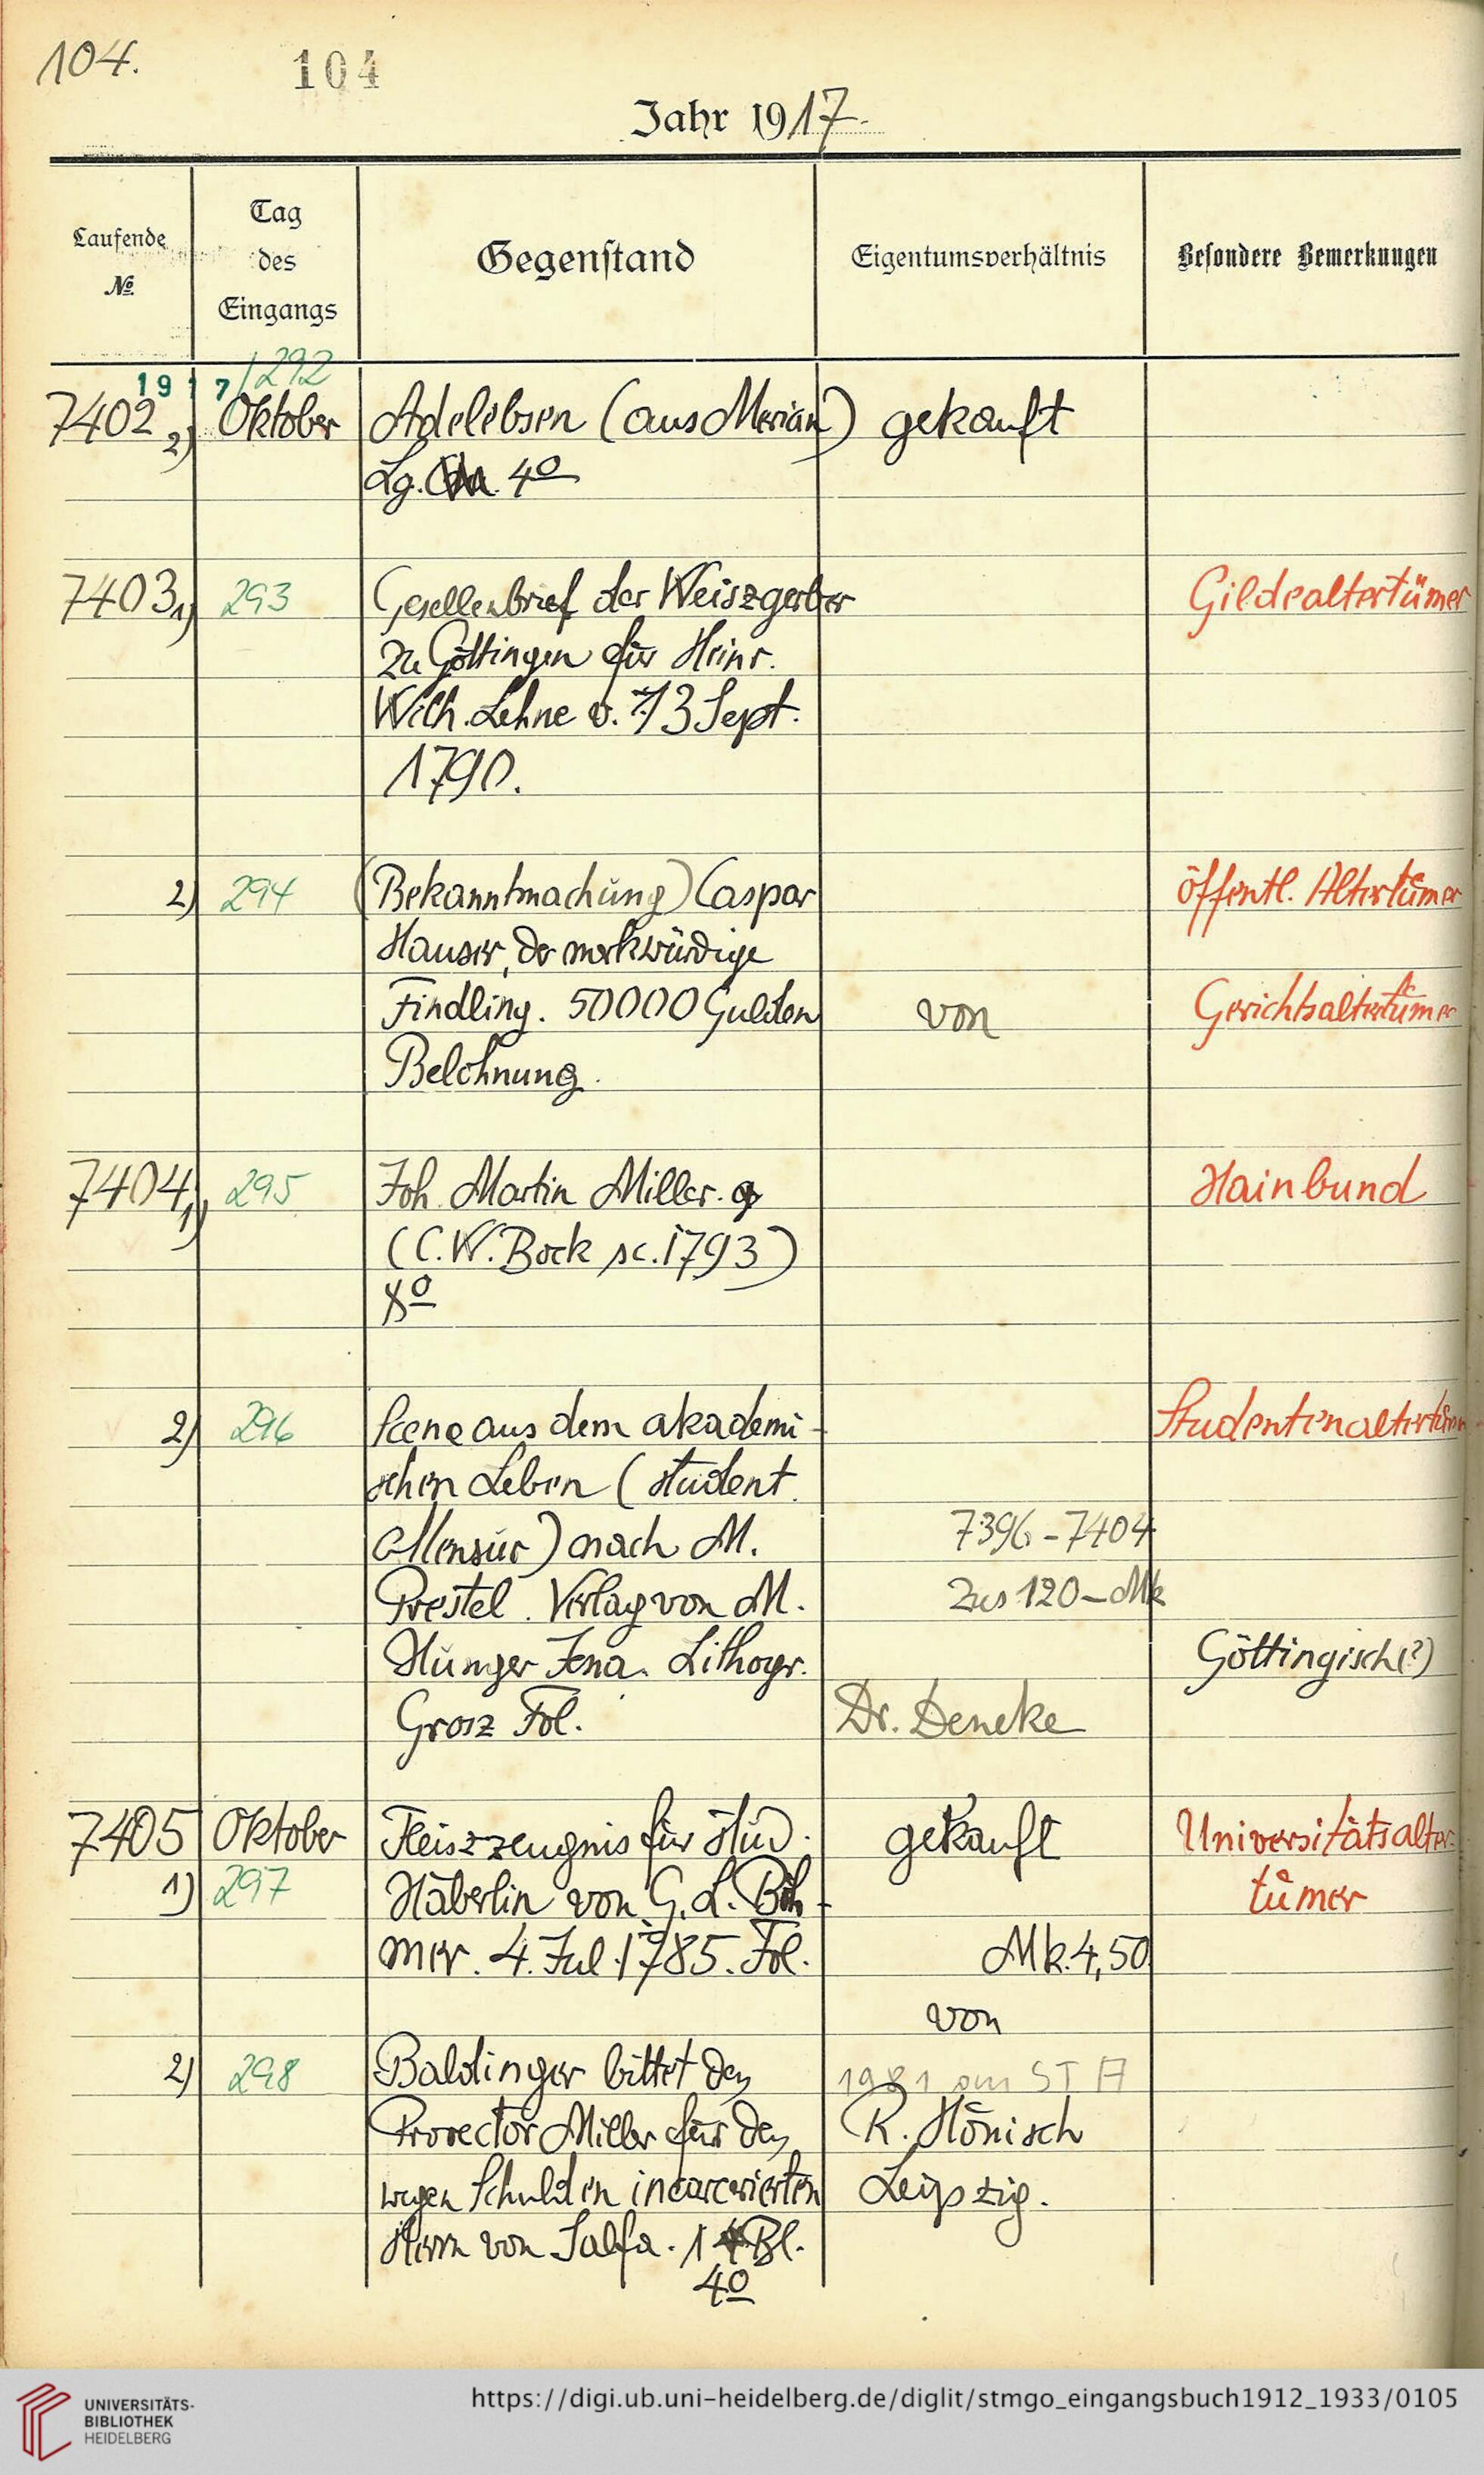 104.
104
Jahr 1917.
Laufende
№
Tag
des
Eingangs
Gegenstand
Eigentumsverhältnis
Besondere Bemerkungen
1917 / 292
7402 2) Oktober Adelebsen (aus Merian) gekauft
Lg. 4º
7403 1) 293 Gesellenbrief der Weiszgerber Gildealtertümer
zu Göttingen für Heinr.
Wilh. Lehne v. 13 Sept.
1790.
2) 294 (Bekanntmachung) Caspar öffentl. Altertümer
Hauser, der merkwürdige
Findling. 50000 Gulden von Gerichtsaltertümer
Belohnung.
7404 1) 295 Joh. Martin Miller. Hainbund
(C. W. Bock sc. 1793)
8º
2) 296 Scene aus dem akademi- Studentenaltertüm
schen Leben (student.
Mensur) nach M. 7396-7404
Prestel. Verlag von M. Zus 120 – Mk
Hünger Jena. Lithogr. Göttingisch(?)
Grosz Fol. Dr. Deneke
7405 Oktober Fleiszzeugnis für Stud. gekauft Universitätsalter-
1) 297 Häberlin von G. L. Böh- tümer
mer. 4. Jul. 1785. Fol. Mk. 4,50
von
2) 298 Baldinger bittet den 1981 am ST A
Prorector Miller für den R. Hönisch
wegen Schulden incarcerierten Leipzig.
Herrn von Salfa. 1 Bl.
4º
UNIVERSITÄTS-
BIBLIOTHEK
HEIDELBERG
https://digi.ub.uni-heidelberg.de/diglit/stmgo_eingangsbuch1912_1933/0105